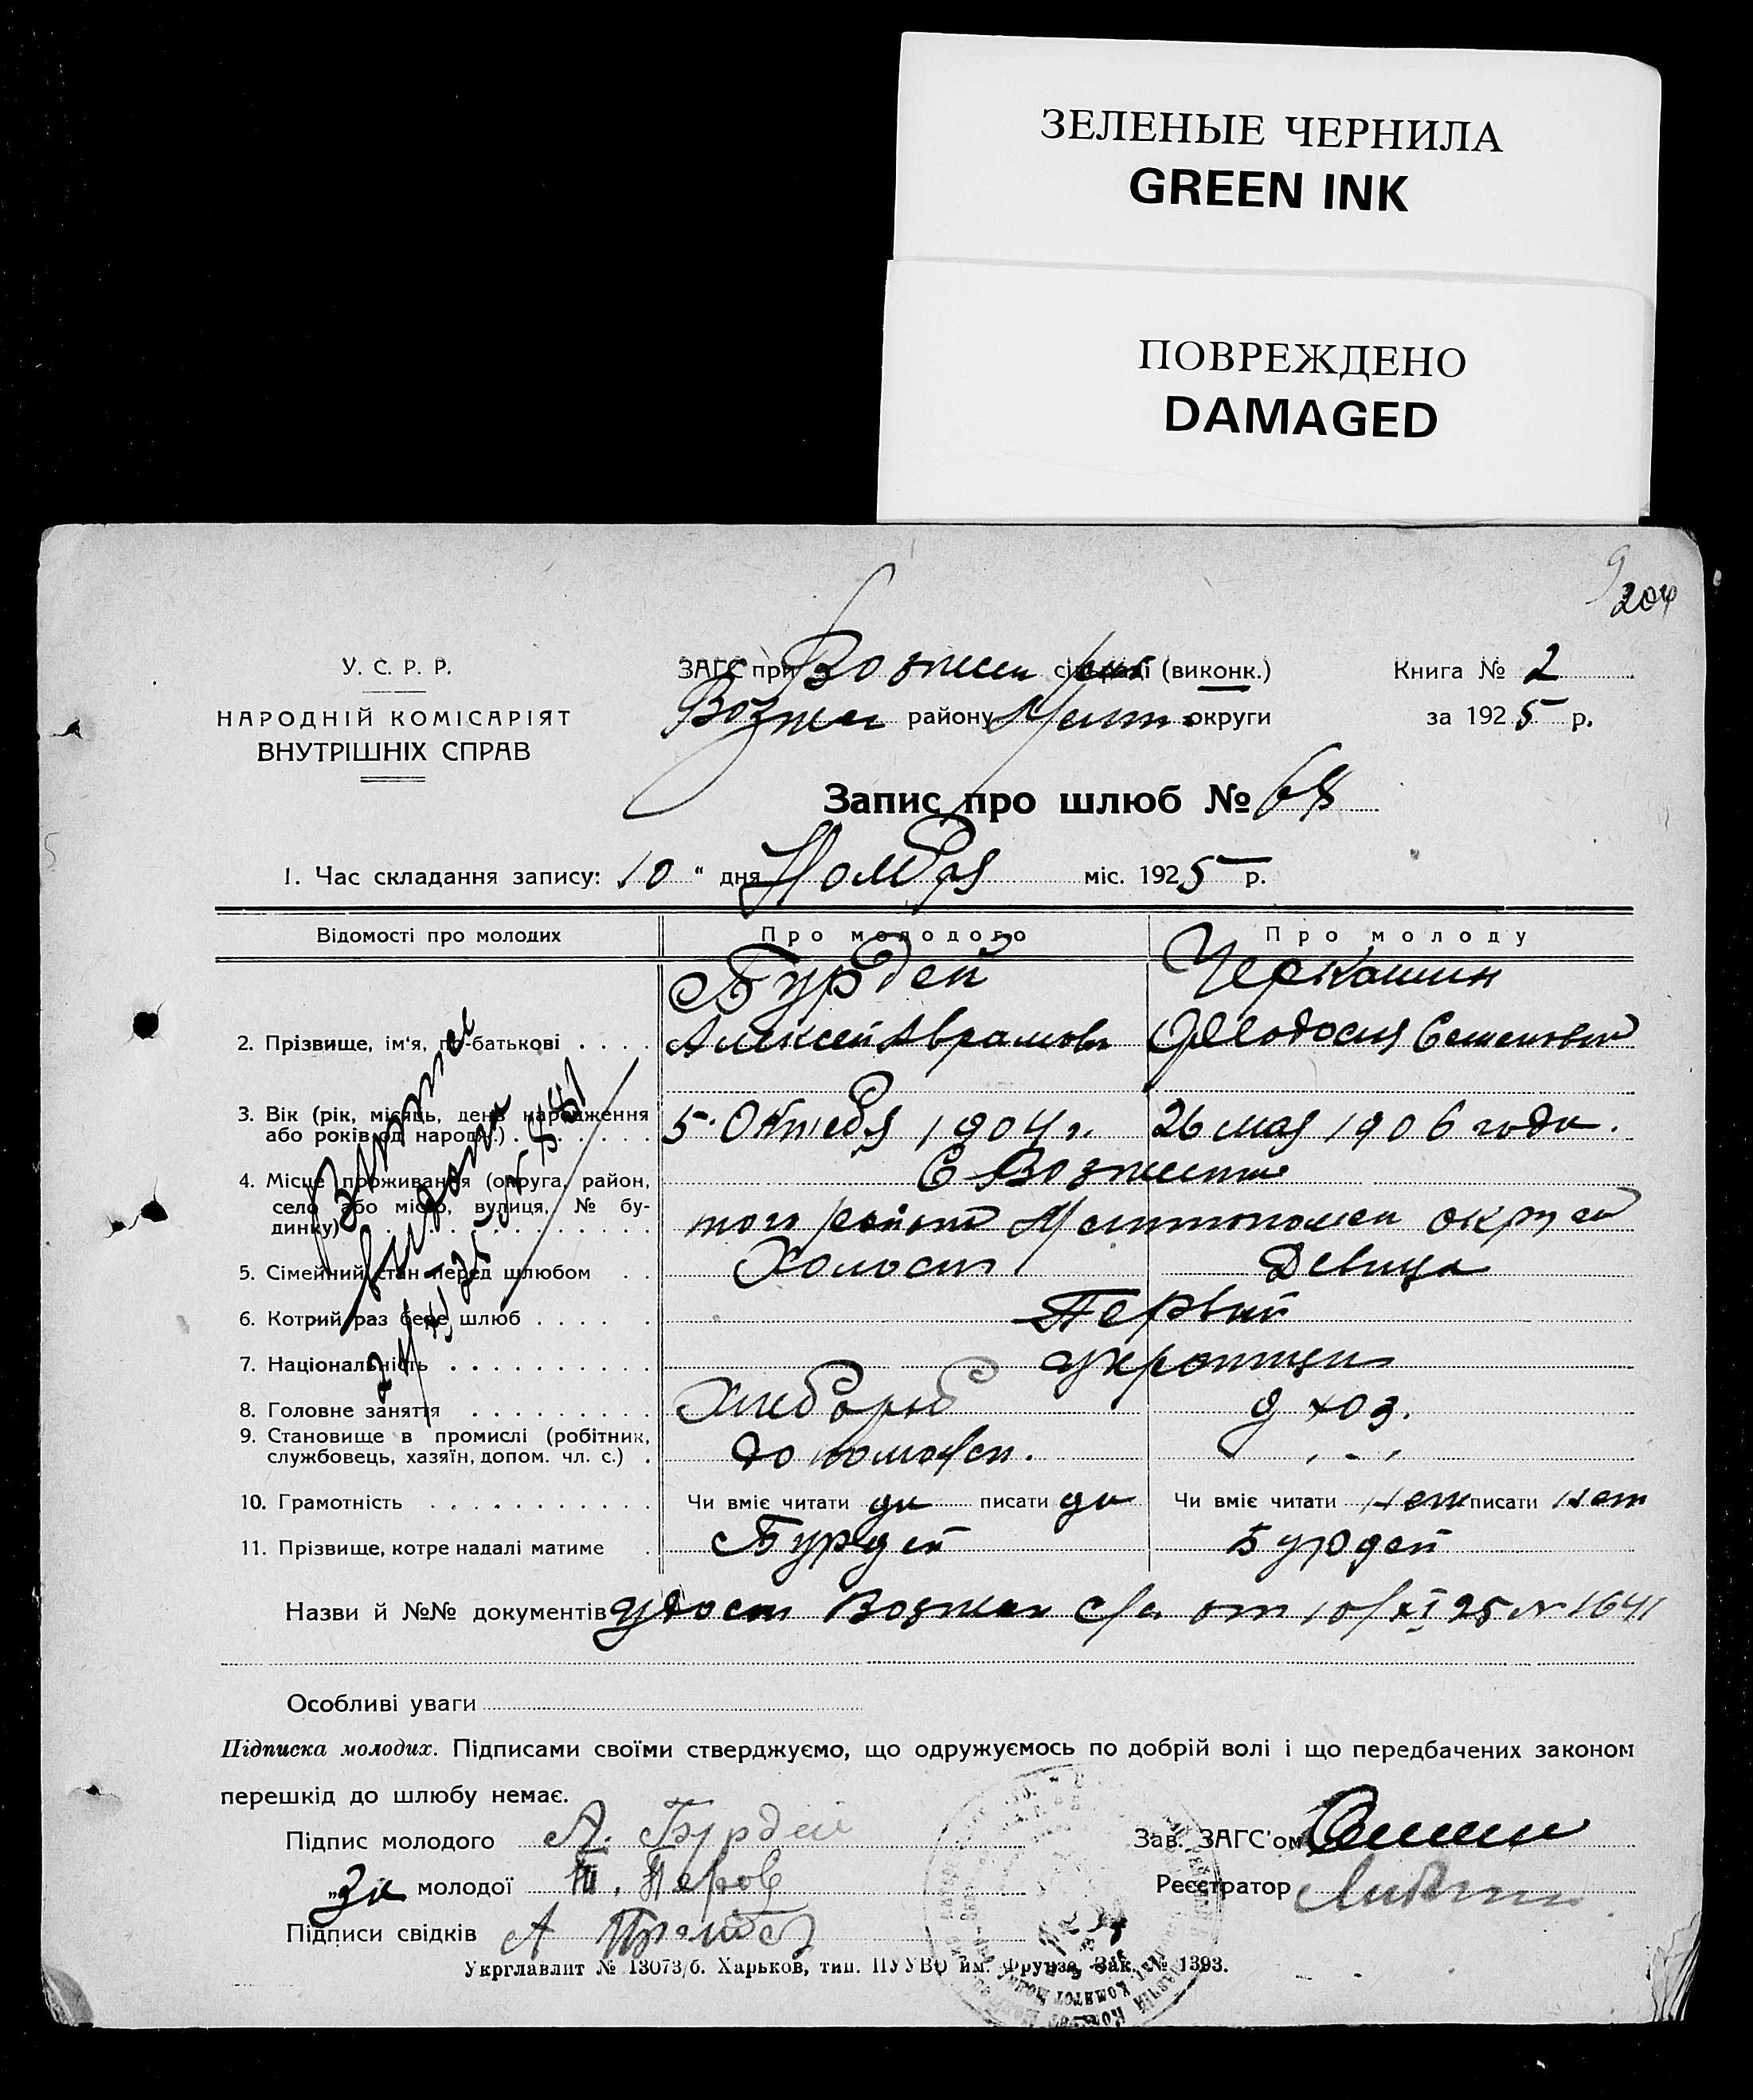 ЗЕЛЕНЫЕ ЧЕРНИЛА
GREEN INK
ПОВРЕЖДЕНО
DAMAGED
204
У. С. Р. Р.
НАРОДНІЙ КОМІСАРІЯТ
ВНУТРІШНІХ СПРАВ
ЗАГС при Вознесен сільраді (виконк.)
района округи
Книга № 2
за 1925 р.
Запис про шлюб № 68
1. Час складання запису: 10 " дня Ноября міс. 1925 р.
Відомості про молодих Про молодого Про молоду
Бурдей Черкашин
2. Прізвище, ім'я, по-батькові . . . . Алексей Аврамов Феодосия Семеновна
3. Вік (рік, місяць, день народження
або років од народж.) . . . . . . . 5 Октября 1904 г. 26 мая 1906 года.
4. Місце проживання (округа, район,
село або місто, вулиця, № бу-
динку) . . . того района округи
5. Сімейний стан перед шлюбом . . Холост Девица
6. Котрий раз бере шлюб . . . . . Первый
7. Національність . . . . . . . . . . украинцы
8. Головне заняття . . . . . . . . . Хлебороб д хоз.
9. Становище в промислі (робітник,
службовець, хазяїн, допом. чл. с.) . - " -
10. Грамотність . . . . . . . . . . . Чи вміє читати да писати да Чи вміє читати нет писати нет
11. Прізвище, котре надалі матиме . Бурдей Бурдей
Назви й №№ документів удост Вознесен с/с от 10/XI 25 № 1641
Особливі уваги
Підписка молодих. Підписами своїми стверджуємо, що одружуємось по добрій волі і що передбачених законом
перешкід до шлюбу немає.
Підпис молодого А. Бурдей
Зав. ЗАГС'ом
„За молодої
Реєстратор
Підписи свідків А
Укрглавліт № 13073/б. Харьков, тип. ПУУВО им. Фрунзе. Зак. № 1393.